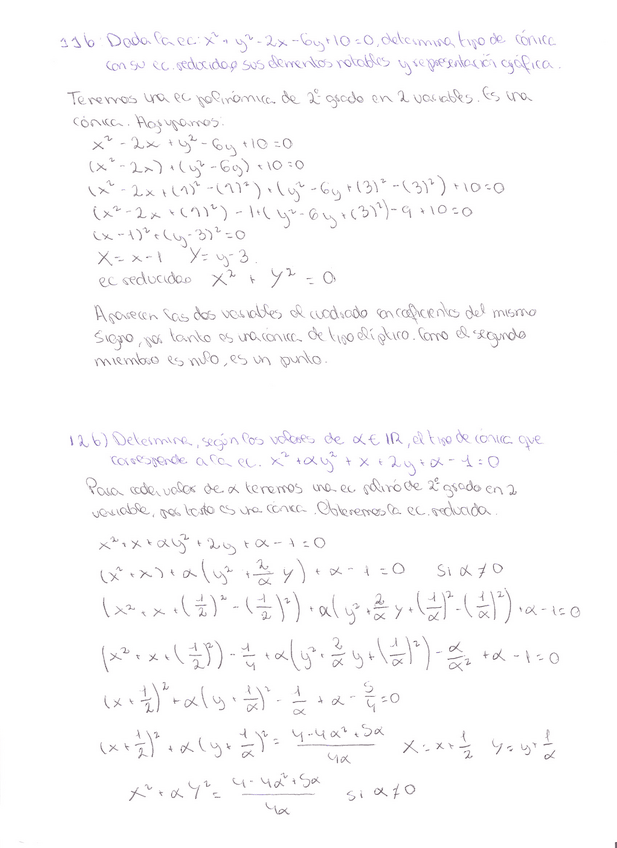 11b Dada la ec. x² + y² - 2x - 6y + 10 = 0, determina tipo de cónica
con su ec. reducida, sus elementos notables y representación gráfica.
Tenemos una ec polinómica de 2º grado en 2 variables. Es una
cónica. Agrupamos.
x² - 2x + y² - 6y + 10 = 0
(x² - 2x) + (y² - 6y) + 10 = 0
(x² - 2x + (1)² - (1)²) + (y² - 6y + (3)² - (3)²) + 10 = 0
(x² - 2x + (1)²) - 1 + (y² - 6y + (3)²) - 9 + 10 = 0
(x - 1)² + (y - 3)² = 0
X = x - 1 Y = y - 3
ec reducida X² + Y² = 0
Aparecen las dos variables al cuadrado con coeficientes del mismo
signo, por tanto es una cónica de tipo elíptico. Como el segundo
miembro es nulo, es un punto.
12 b) Determina, según los valores de α ∈ ℝ, el tipo de cónica que
corresponde a la ec. x² + αy² + x + 2y + α - 1 = 0
Para cada valor de α tenemos una ec polinó de 2º grado en 2
variable, por tanto es una cónica. Obtenemos la ec. reducida.
x² + x + αy² + 2y + α - 1 = 0
(x² + x) + α(y² + 2/α y) + α - 1 = 0 si α ≠ 0
(x² + x + (1/2)² - (1/2)²) + α(y² + 2/α y + (1/α)² - (1/α)²) + α - 1 = 0
(x² + x + (1/2)²) - 1/4 + α(y² + 2/α y + (1/α)²) - α/α² + α - 1 = 0
(x + 1/2)² + α(y + 1/α)² - 1/α + α - 5/4 = 0
(x + 1/2)² + α(y + 1/α)² = (4 - 4α² + 5α)/4α X = x + 1/2 Y = y + 1/α
X² + αY² = (4 - 4α² + 5α)/4α si α ≠ 0